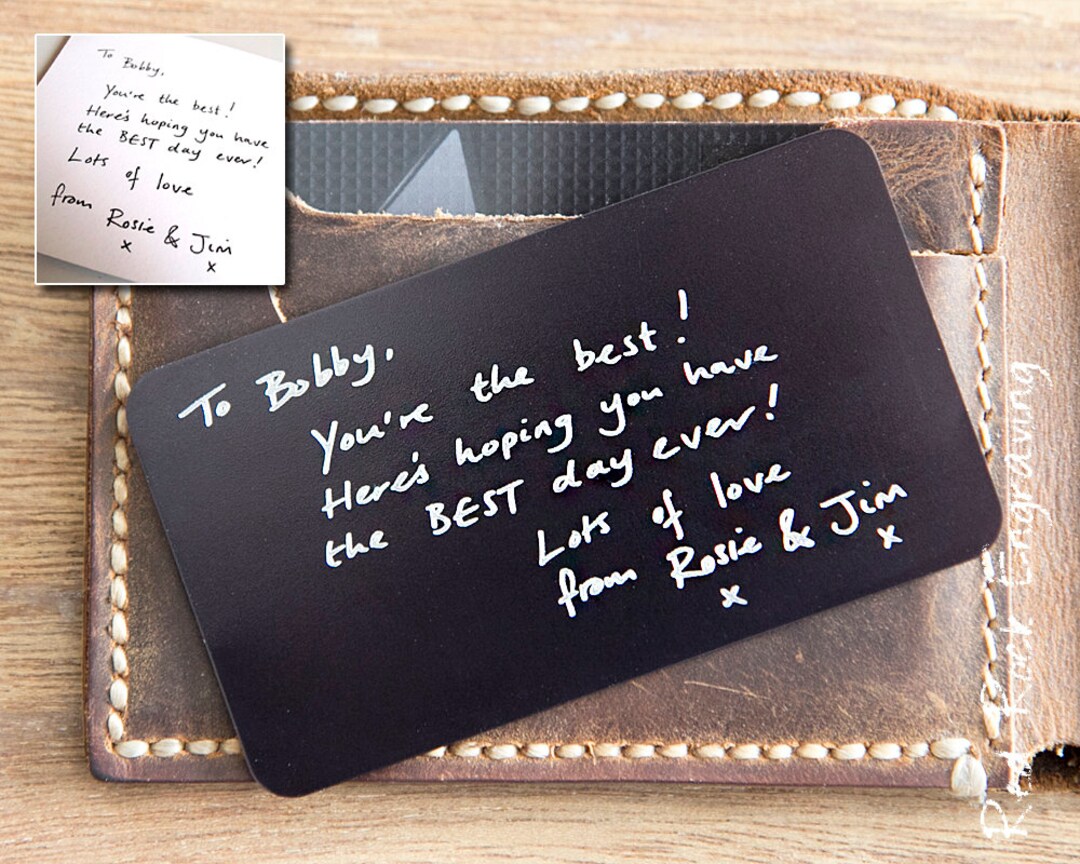 To Bobby,
You're the best!
Here's hoping you have
the BEST day ever!
Lots of love
from Rosie & Jim
x x
To Bobby,
You're the best!
Here's hoping you have
the BEST day ever!
Lots of love
from Rosie & Jim
x x
Engraving